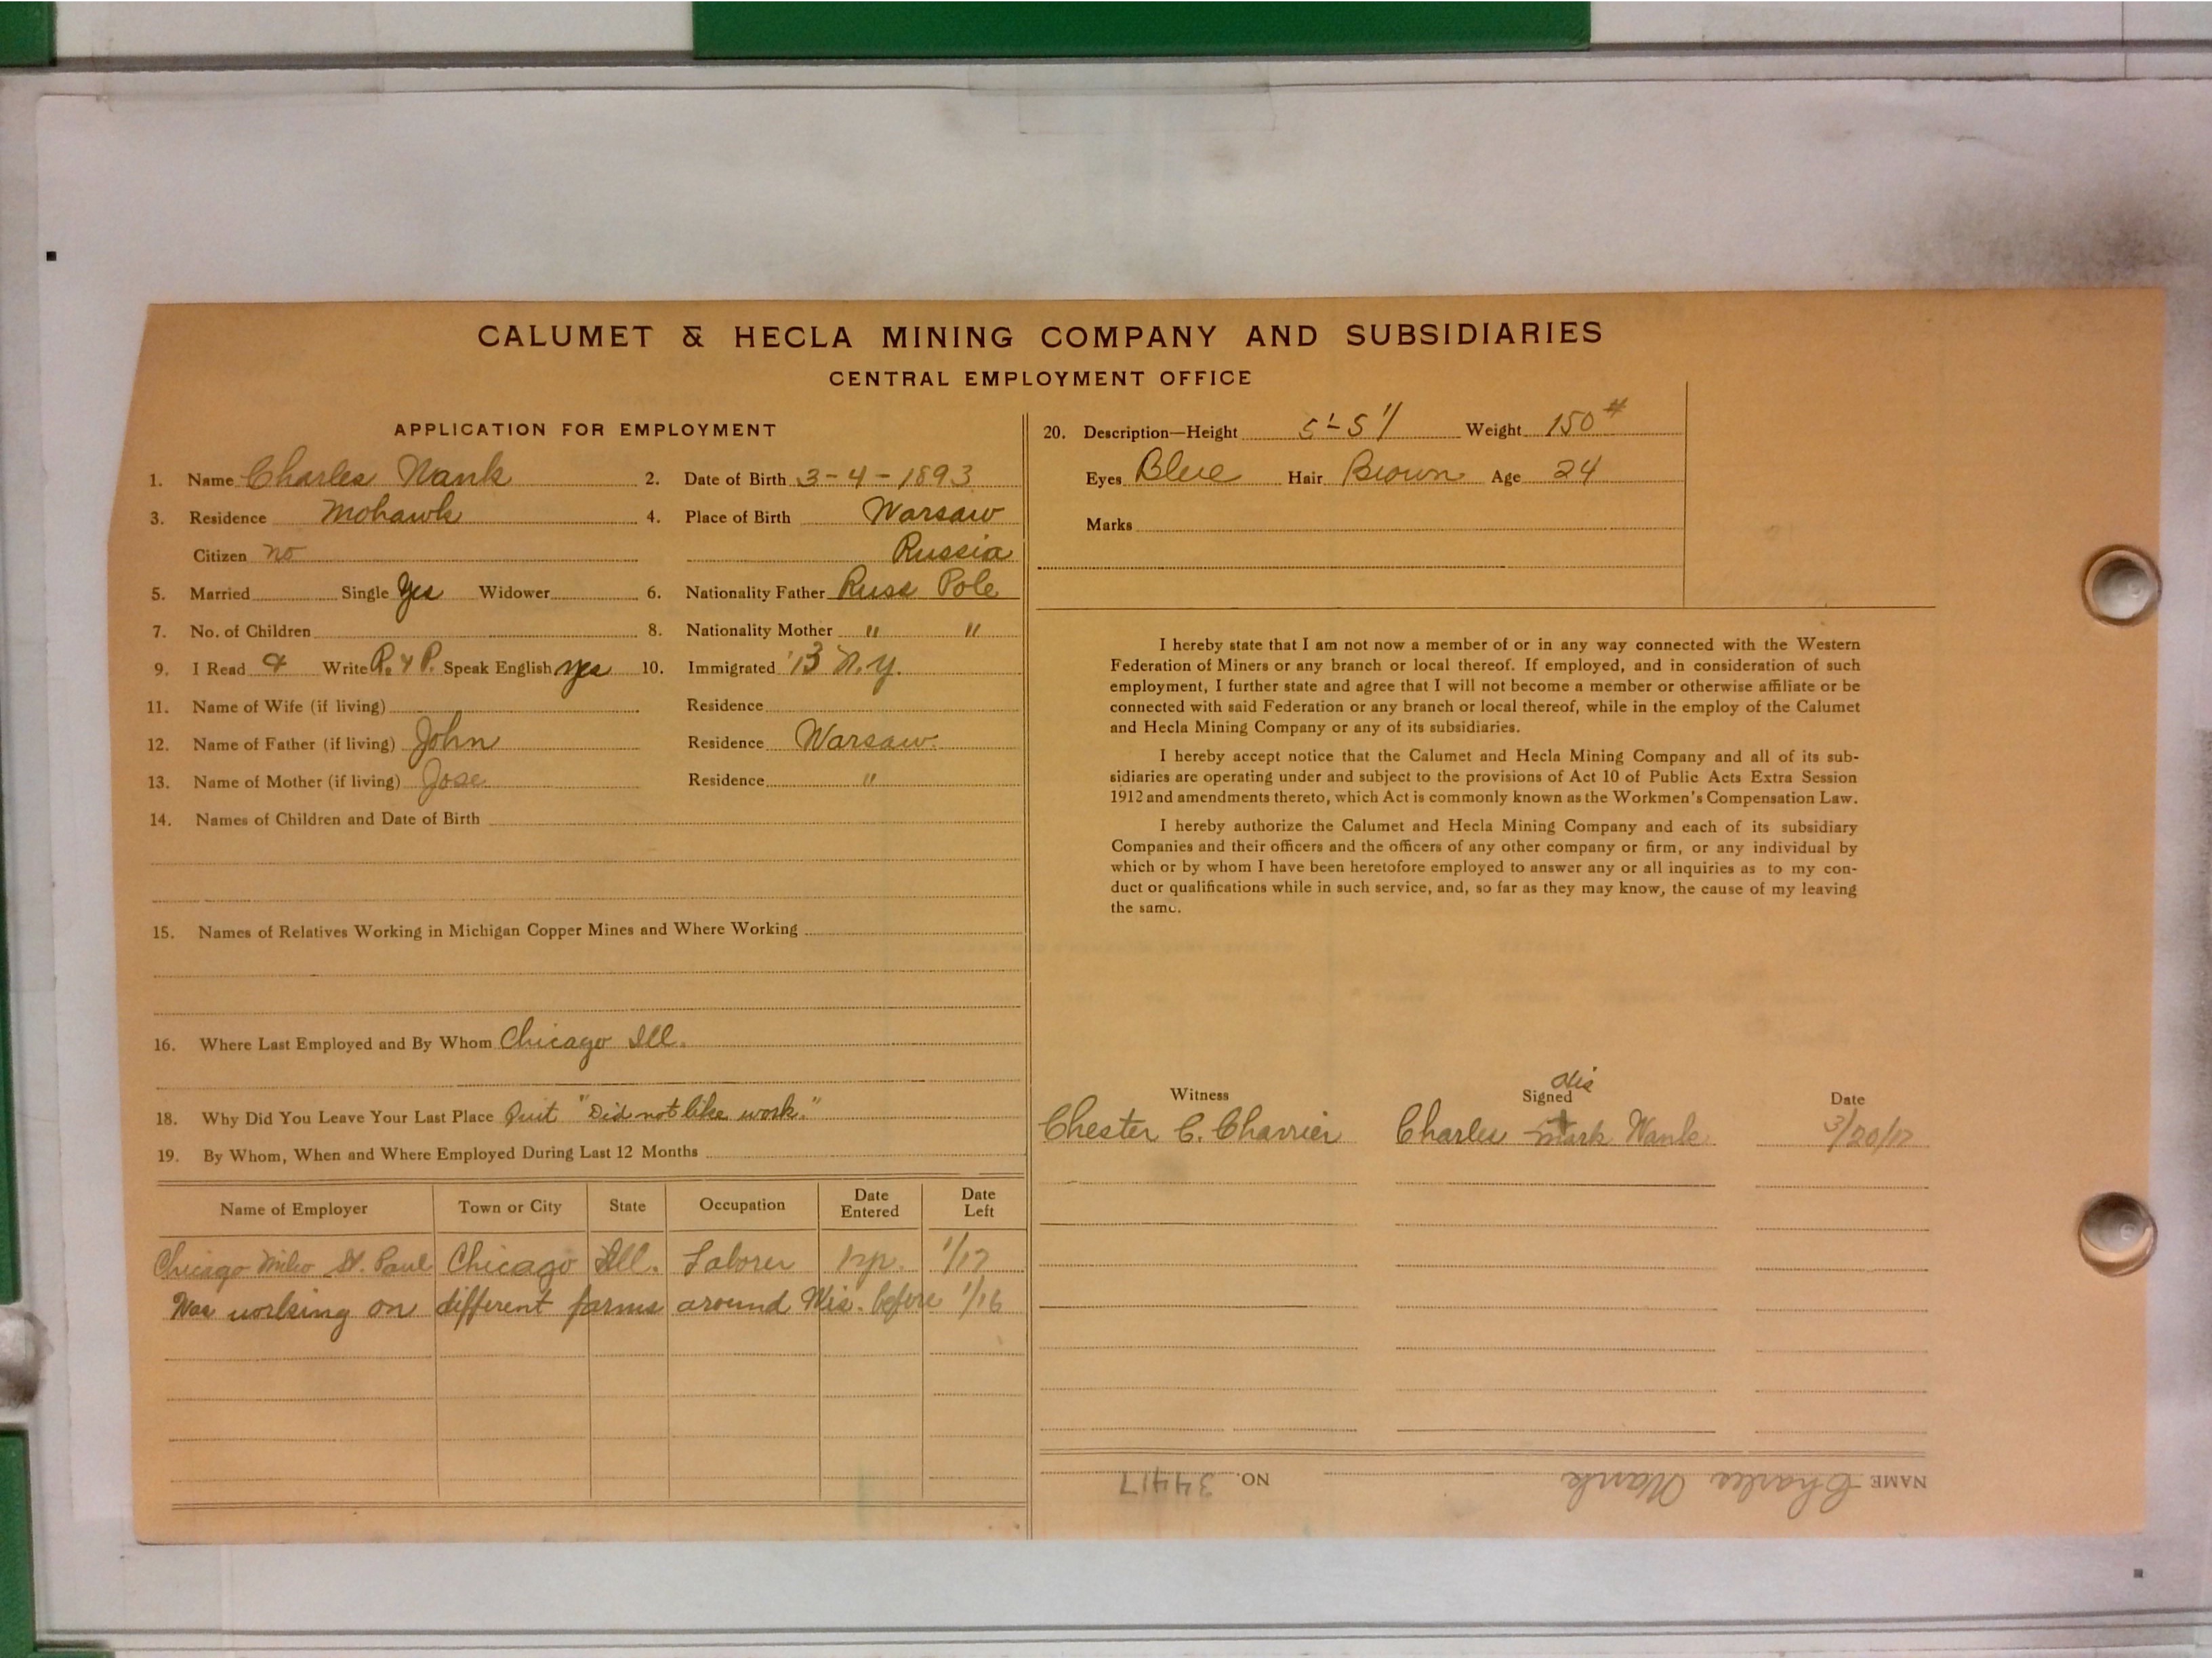 CALUMET & HECLA MINING COMPANY AND SUBSIDIARIES
CENTRAL EMPLOYMENT OFFICE
APPLICATION FOR EMPLOYMENT
1. Name Charles Wank 2. Date of Birth 3-4-1893
3. Residence Mohawk 4. Place of Birth Warsaw
Citizen no Russia
5. Married Single Yes Widower 6. Nationality Father Russ Pole
7. No. of Children 8. Nationality Mother " "
9. I Read & Write R. & P. Speak English yes 10. Immigrated '13 N.Y.
11. Name of Wife (if living) Residence
12. Name of Father (if living) John Residence Warsaw.
13. Name of Mother (if living) Jose Residence "
14. Names of Children and Date of Birth
15. Names of Relatives Working in Michigan Copper Mines and Where Working
16. Where Last Employed and By Whom Chicago Ill.
18. Why Did You Leave Your Last Place Quit "Did not like work."
19. By Whom, When and Where Employed During Last 12 Months
Name of Employer Town or City State Occupation Date Entered Date Left
Chicago Milw St. Paul Chicago Ill. Laborer 1 yr. 1/17
Was working on different farms around Wis. before 1/16
20. Description—Height 5'-5" Weight 150#
Eyes Blue Hair Brown Age 24
Marks
I hereby state that I am not now a member of or in any way connected with the Western
Federation of Miners or any branch or local thereof. If employed, and in consideration of such
employment, I further state and agree that I will not become a member or otherwise affiliate or be
connected with said Federation or any branch or local thereof, while in the employ of the Calumet
and Hecla Mining Company or any of its subsidiaries.
I hereby accept notice that the Calumet and Hecla Mining Company and all of its sub-
sidiaries are operating under and subject to the provisions of Act 10 of Public Acts Extra Session
1912 and amendments thereto, which Act is commonly known as the Workmen's Compensation Law.
I hereby authorize the Calumet and Hecla Mining Company and each of its subsidiary
Companies and their officers and the officers of any other company or firm, or any individual by
which or by whom I have been heretofore employed to answer any or all inquiries as to my con-
duct or qualifications while in such service, and, so far as they may know, the cause of my leaving
the same.
Witness Signed his Date
Chester C. Charrier Charles + mark Wank 3/20/17
NAME Charles Wank NO. 34417